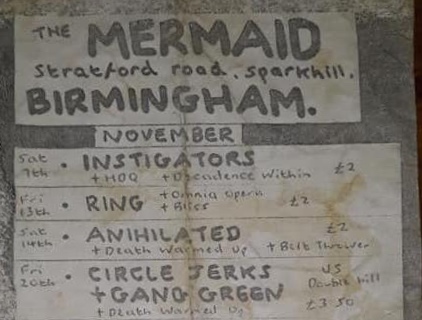 THE MERMAID
Stratford road, Sparkhill,
BIRMINGHAM.
NOVEMBER
Sat 7th • INSTIGATORS £2
+ HDQ + Decadence Within
Fri 13th • RING + Omnia Opera £2
+ Bliss
Sat 14th • ANIHILATED £2
+ Death Warmed Up + Bolt Thrower
Fri 20th • CIRCLE JERKS US
+ GANG GREEN Double bill
+ Death Warmed Up £3.50